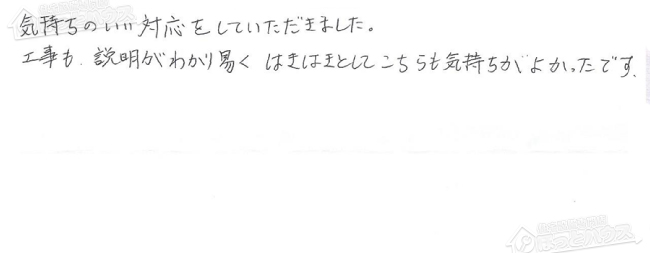 気持ちのいい対応をしていただきました。
工事も、説明がわかり易く はきはきとしてこちらも気持ちがよかったです.